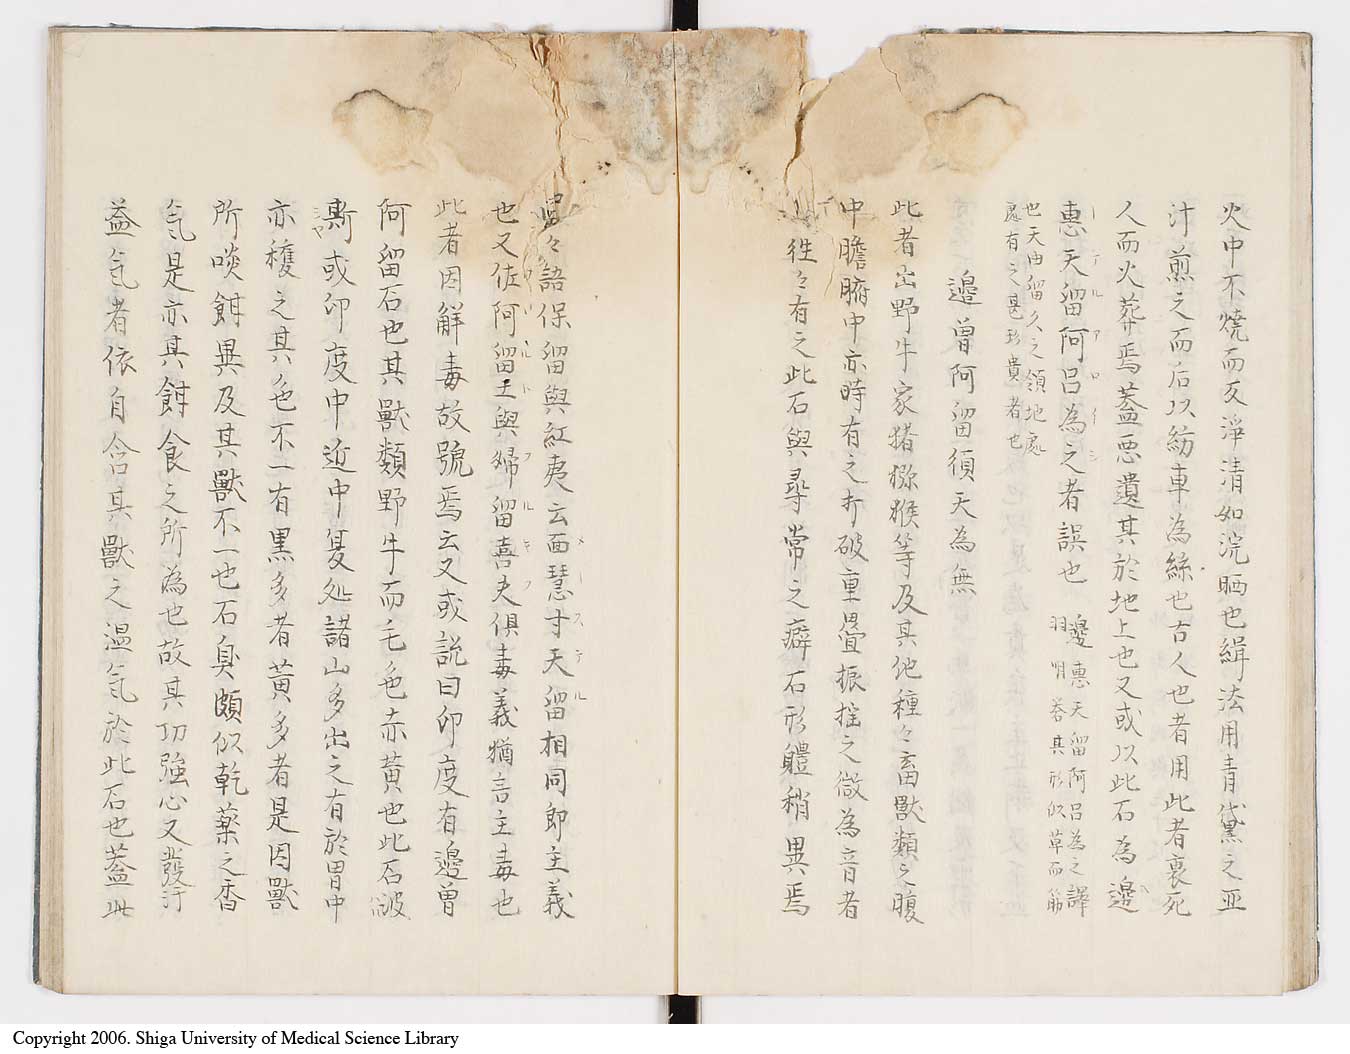 火中不燒而反淨清如浣晒也緝法用青黛之亚
汁煎之而后以紡車為絲也古人也者用此者裹死
人而火葬焉蓋悪遺其於地上也又或以此石為邊
惠天留阿呂為之者誤也 邊惠天留阿呂為之譯
羽明礬其形似草而筋
ーテルアロイシ
也天由留久之領地處
處有之甚形貴者也
邊曾阿留須天為無
此者出野牛家猪猕猴等及其他種々畜獸類之腹
中膽腑中亦時有之打破重疊振搖之微為音者
徃々有之此石與尋常之癖石形軆稍異焉
々語保留與紅夷云面慧寸天留相同即主義
メーステル
也又佐阿留王與婦留喜夫俱毒義猶言主毒也
此者因解毒故號焉云又或説曰印度有邊曽
阿留石也其獸類野牛而毛色赤黃也此石波
斯或印度中近中复処諸山多出之有於胃中
亦穫之其色不一有黒多者黃多者是因獸
所啖餌異及其獸不一也石臭頗似乾薬之香
気是亦其餌食之所為也故其功強心又發汗
益気者依自含其獸之温気於此石也蓋此
Copyright 2006. Shiga University of Medical Science Library